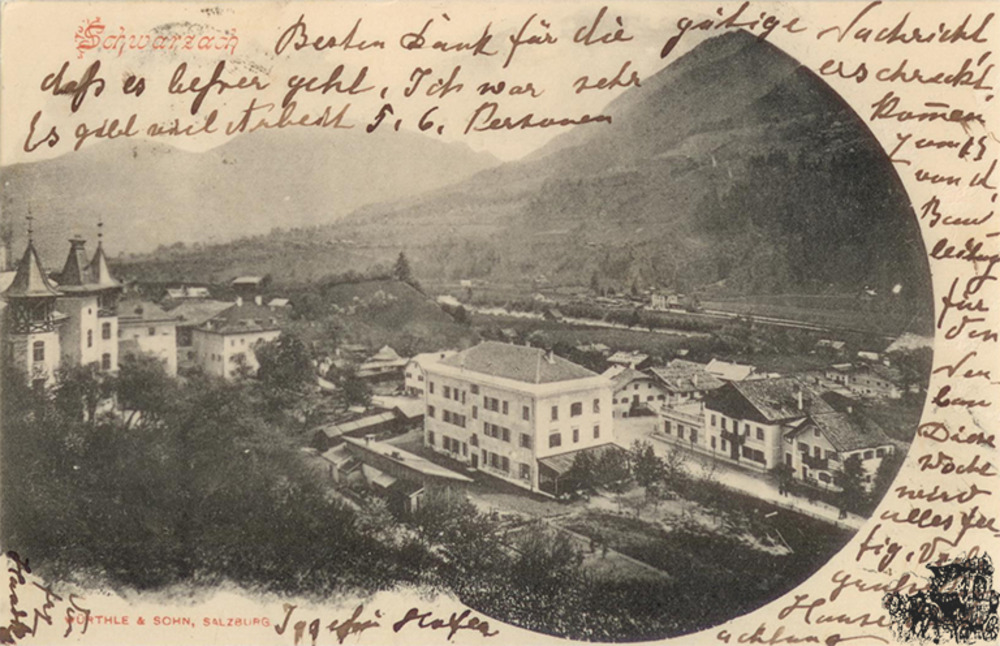 Schwarzach
Besten Dank für die gütige Nachricht
daß es besser geht, Ich war sehr erschreckt,
Es gibt viel Arbeit 5, 6, Personen kom̄en
von d.
Bau
leitung
für
den
Neu
bau
Diese
Woche
wird
alles fer
tig,
Hause
achtung
WÜRTHLE & SOHN, SALZBURG